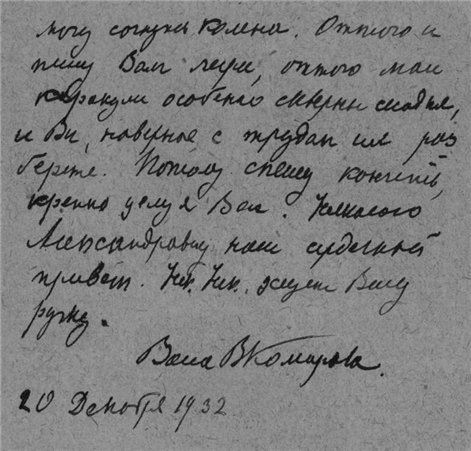 могу согнуть колена. Оттого и
пишу Вам лежа, оттого мои
каракули особенно скверны сегодня,
и Вы, наверное с трудом их раз
берете. Потому спешу кончить,
крепко целуя Вас. Николаю
Александровичу наш сердечный
привет. Ник. Ник. жмет Вашу
ручку.
Ваша ВКомарова.
20 Декабря 1932